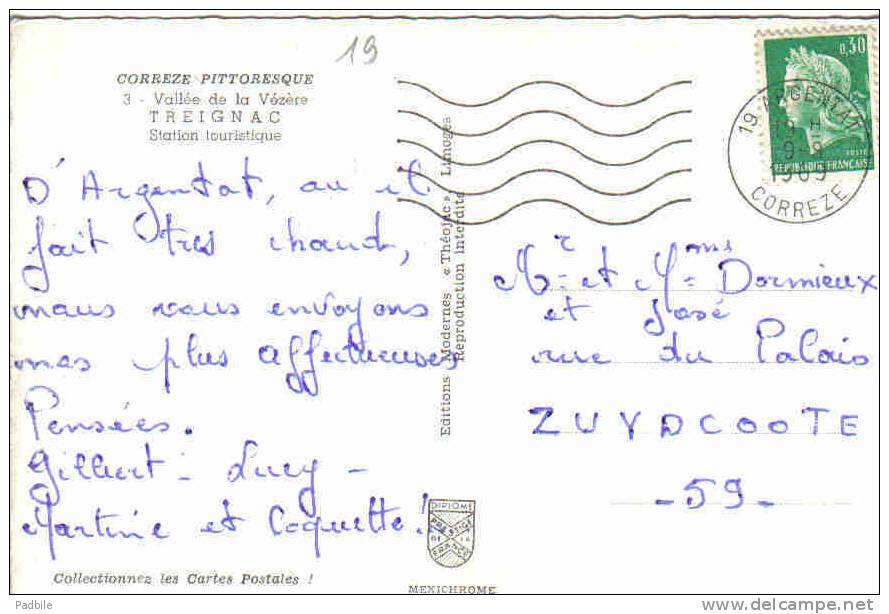 19
CORREZE PITTORESQUE
3 - Vallée de la Vézère
TREIGNAC
Station touristique
D'Argentat, où il
fait très chaud,
nous vous envoyons
nos plus affectueuses
Pensées.
Gilbert - Lucy -
Martine et Coquette !
Collectionnez les Cartes Postales !
Editions Modernes « Théojac » Limoges
Reproduction interdite
DIPLOME
PRESTIGE
DE LA
FRANCE
MEXICHROME
0,30
POSTES
REPUBLIQUE FRANÇAISE
19 ARGENTAT
19 H
9-8
1969
CORREZE
Mr et Mme Dormieux
et José
rue du Palais
ZUYDCOOTE
- 59 -
Padbile
www.delcampe.net